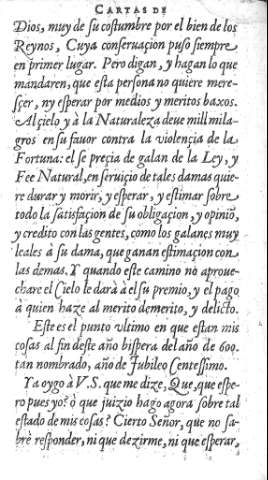 CARTAS DE
Dios, muy de su costumbre por el bien de los
Reynos, Cuya conseruaçion puso siempre
en primer lugar. Pero digan, y hagan lo que
mandaren, que esta persona no quiere mere-
sçer, ny esperar por medios y meritos baxos.
Al çielo y à la Naturaleza deue mill mila-
gros en su fauor contra la violençia de la
Fortuna: el se preçia de galan de la Ley, y
Fee Natural, en seruiçio de tales damas quie-
re durar y morir, y esperar, y estimar sobre
todo la satisfaçion de su obligaçion, y opiniõ,
y credito con las gentes, como los galanes muy
leales à su dama, que ganan estimaçion con
las demas. Y quando este camino no aproue-
chare el Cielo le darà à el su premio, y el pago
à quien haze al merito demerito, y delicto.
Este es el punto vltimo en que estan mis
cosas al fin deste año bispera del año de 600.
tan nombrado, año de Iubileo Centessimo.
Ya oygo à V.S. que me dize, Que, que espe-
ro pues yo? ò que juizio hago agora sobre tal
estado de mis cosas? Cierto Señor, que no sa-
brè responder, ni que dezirme, ni que esperar,